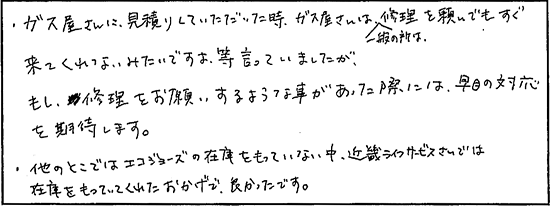 ・ガス屋さんに、見積りしていただいた時、ガス屋さんは、修理を頼んでもすぐ
一般の所は、
来てくれないみたいですよ、等言っていましたが、
もし、修理をお願いするような事があった際には、早目の対応
を期待します。
・他のとこではエコジョーズの在庫をもっていない中、近畿ライフサービスさんでは
在庫をもっていてくれたおかげで、良かったです。